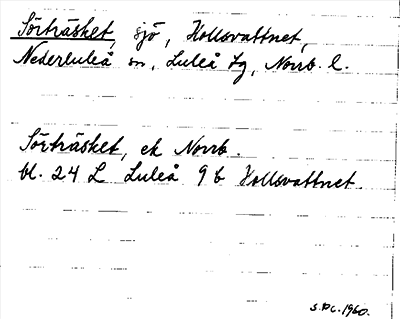 Sörträsket, sjö, Hollsvattnet,
Nederluleå sn, Luleå tg, Norrb. l.
Sörträsket, ek Norrb.
bl. 24 L Luleå 9 b Hollsvattnet
S.Pc. 1960.